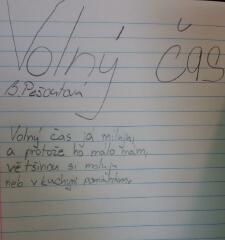 Volný čas
B. Pešoutová
Volný čas já miluji,
a protože ho málo mám,
většinou si maluju
neb v kuchyni pomáhám.